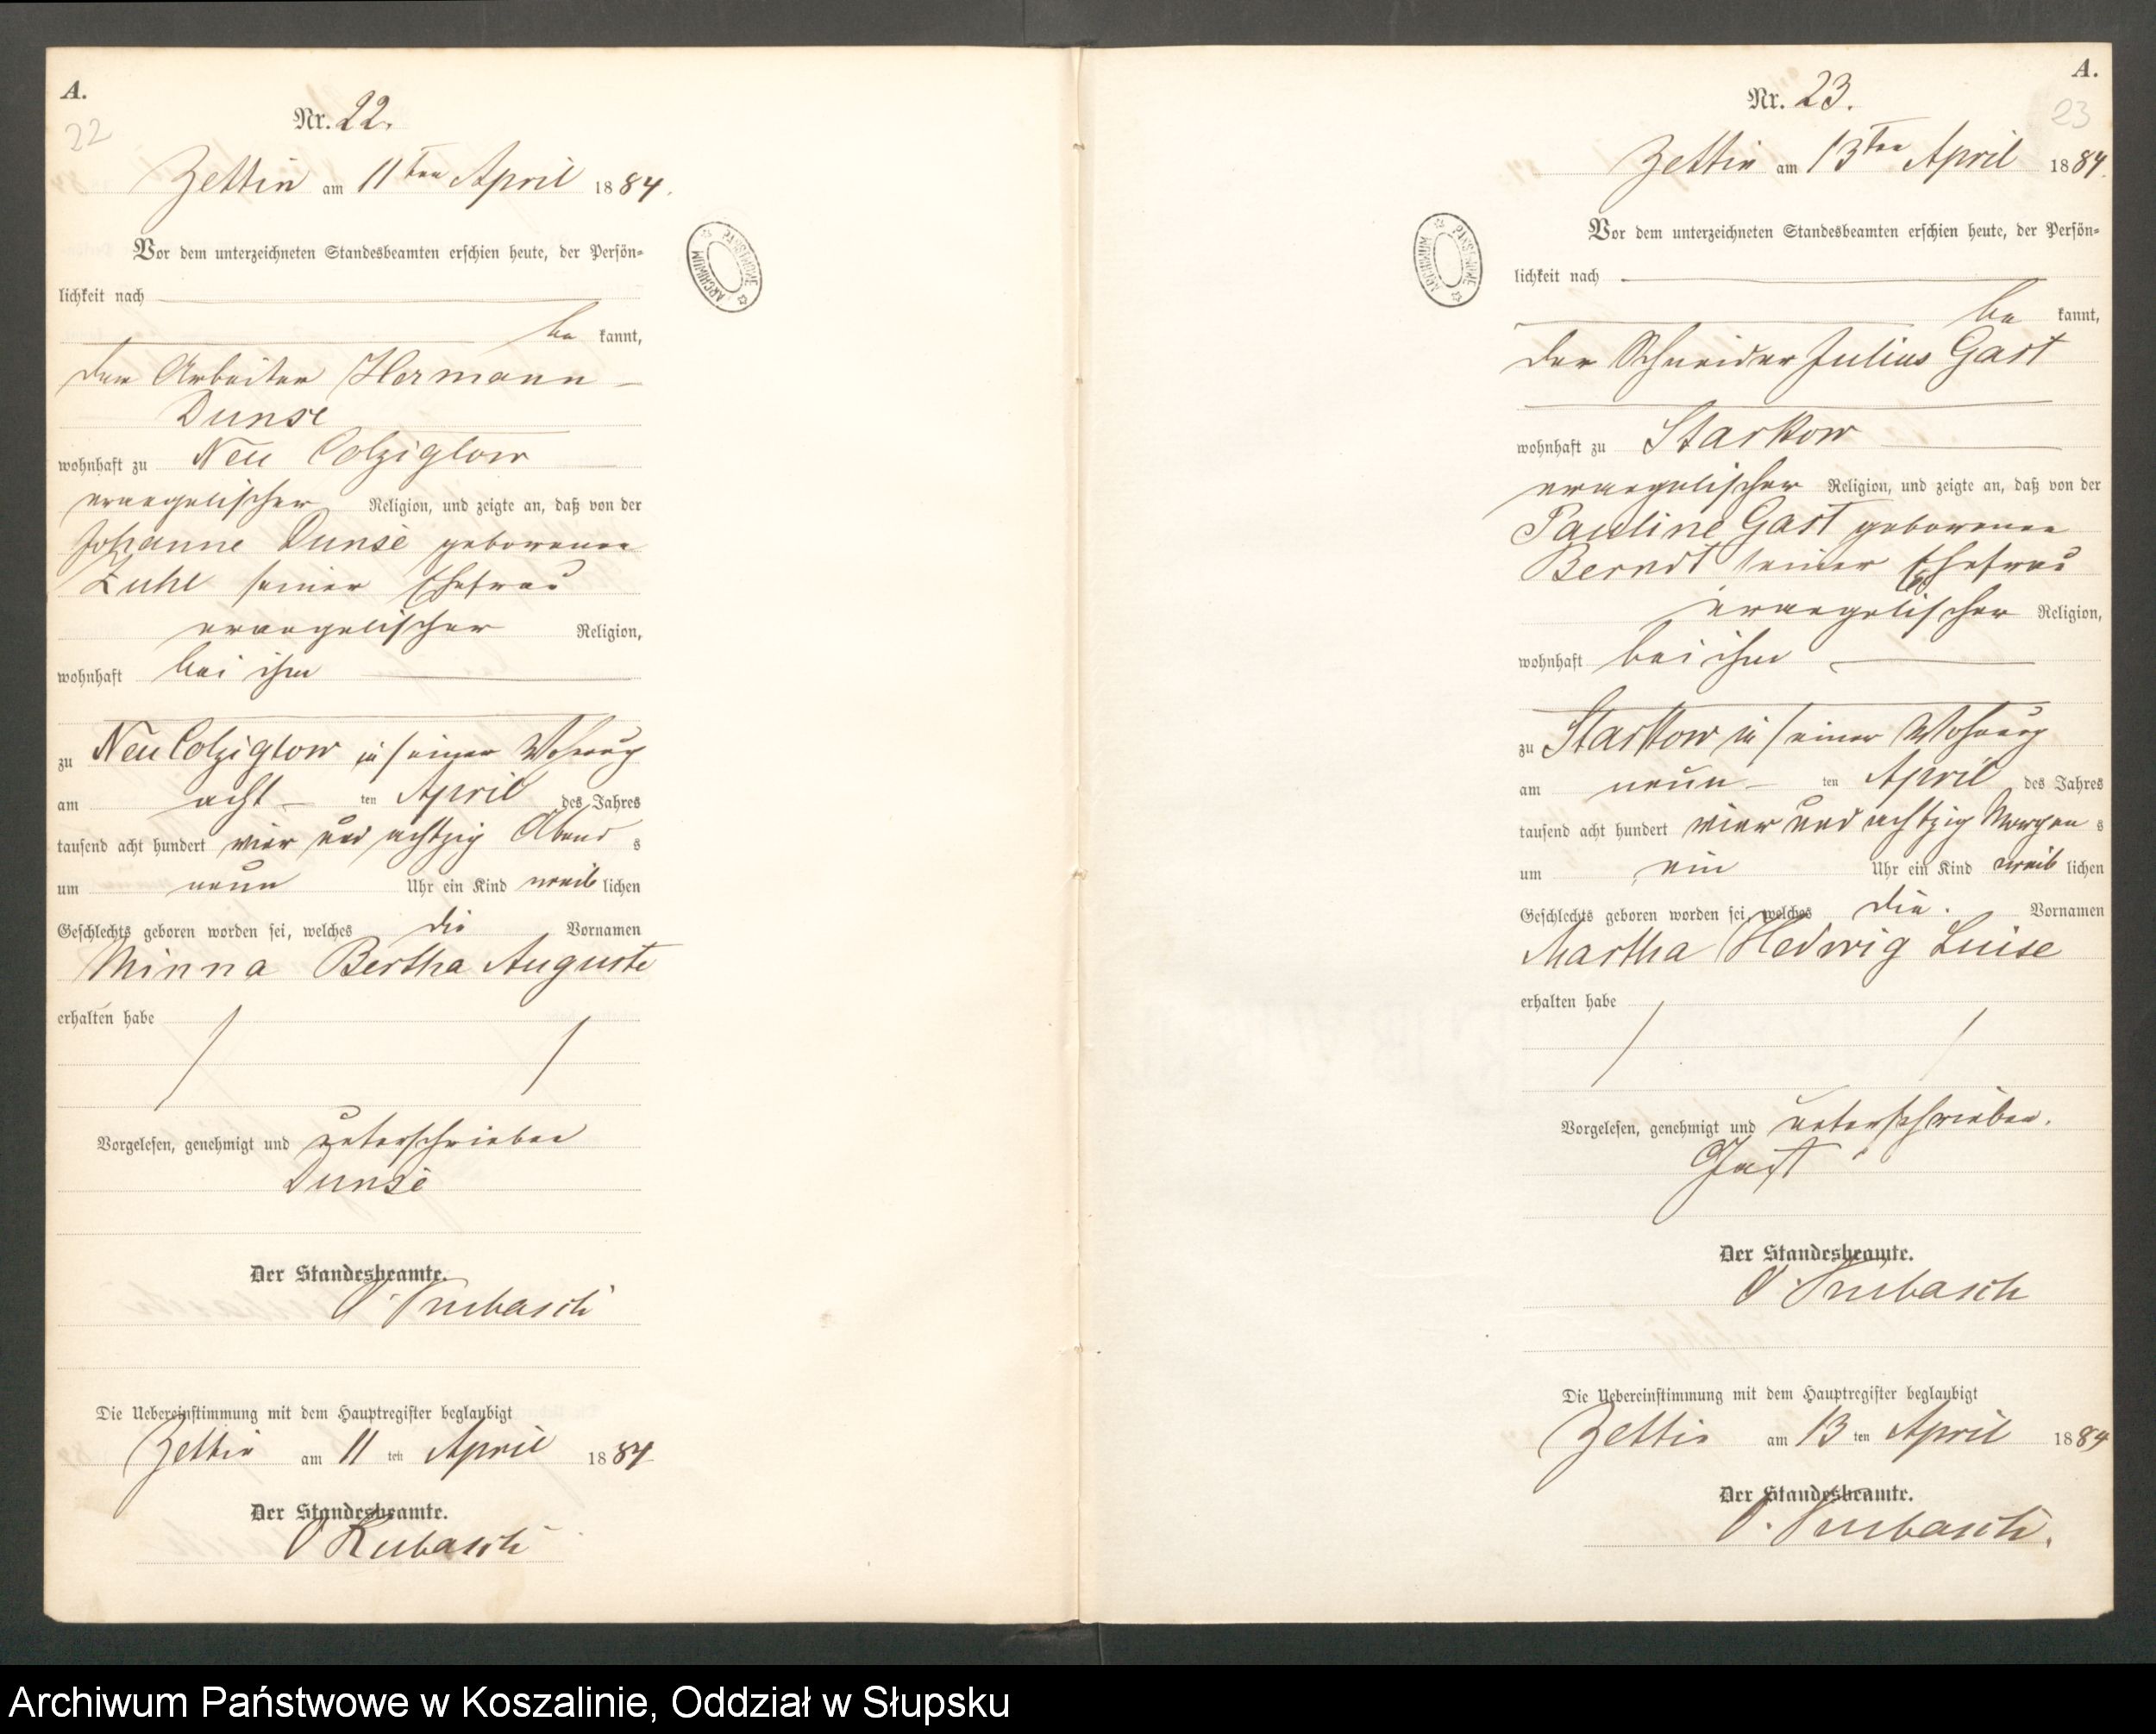 A.
22
Nr. 22.
Zettin am 11ten April 1884.
Vor dem unterzeichneten Standesbeamten erschien heute, der Persön-
lichkeit nach
be kannt,
der Arbeiter Hermann
Dunse
wohnhaft zu Neu Colziglow
evangelischer Religion, und zeigte an, daß von der
Johanne Dunse geborenen
Zuhl seiner Ehefrau
evangelischer Religion,
wohnhaft bei ihm
zu Neu Colziglow in seiner Wohnung
am acht ten April des Jahres
tausend acht hundert vier und achtzig Abend s
um neun Uhr ein Kind weib lichen
Geschlechts geboren worden sei, welches die Vornamen
Minna Bertha Auguste
erhalten habe
Vorgelesen, genehmigt und unterschrieben
Dunse
Der Standesbeamte.
Kubasch
Die Uebereinstimmung mit dem Hauptregister beglaubigt
Zettin am 11 ten April 1884
Der Standesbeamte.
Kubasch
ARCHIWUM PAŃSTWOWE
A.
23
Nr. 23.
Zettin am 13ten April 1884.
Vor dem unterzeichneten Standesbeamten erschien heute, der Persön-
lichkeit nach
be kannt,
der Schneider Julius Gast
wohnhaft zu Starkow
evangelischer Religion, und zeigte an, daß von der
Pauline Gast geborenen
Berndt seiner Ehefrau
evangelischer Religion,
wohnhaft bei ihm
zu Starkow in seiner Wohnung
am neun ten April des Jahres
tausend acht hundert vier und achtzig Morgen s
um ein Uhr ein Kind weib lichen
Geschlechts geboren worden sei, welches die. Vornamen
Martha Hedwig Luise
erhalten habe
Vorgelesen, genehmigt und unterschrieben.
Gast
Der Standesbeamte.
Kubasch
Die Uebereinstimmung mit dem Hauptregister beglaubigt
Zettin am 13 ten April 1884
Der Standesbeamte.
Kubasch.
ARCHIWUM PAŃSTWOWE
Archiwum Państwowe w Koszalinie, Oddział w Słupsku